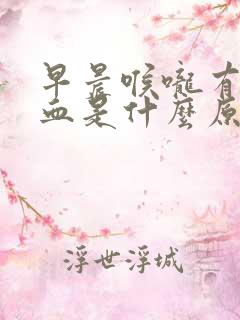 早晨喉嚨有
血是什麼原
浮世浮城